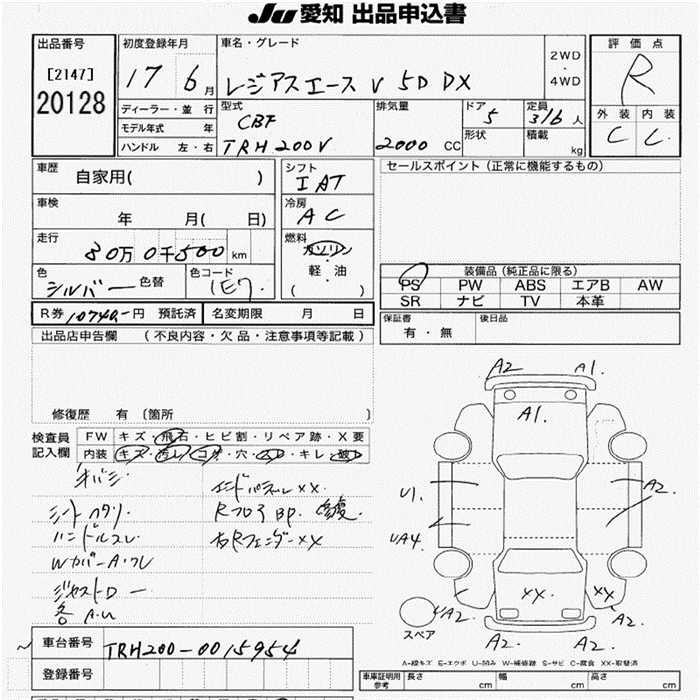 JU 愛知 出品申込書
出品番号
[2147]
20128
初度登録年月
17 6月
車名・グレード
レジアスエース V 5D DX
2WD
・
4WD
評価点
R
外装 内装
C C
ディーラー・並行
モデル年式 年
ハンドル 左・右
型式
CBF
TRH200V
排気量
2000 CC
ドア
5
形状
定員
3/6 人
積載
kg
車歴
自家用( )
車検
年 月( 日)
走行
30万0千500km
色
シルバー
色替
色コード
1E7
シフト
IAT
冷房
AC
燃料
ガソリン
・
軽・油
( )
セールスポイント(正常に機能するもの)
装備品(純正品に限る)
PS PW ABS エアB AW
SR ナビ TV 本革
R券 10740.-円 預託済
名変期限 月 日
保証書
有・無
後日品
出品店申告欄 (不良内容・欠品・注意事項等記載)
修復歴 有〔箇所 〕
検査員
記入欄
FW キズ・飛石・ヒビ割・リペア跡・X要
内装 キズ・汚レ・コゲ・穴・スレ・キレ・破れ
エンドパネルXX
シートヘタリ
ハンドルスレ
右Rフェンダー XX
A2 A1.
A1.
U1.
A2.
UA4.
XX XX
A2
A2
A2. A2.
スペア
A-線キズ E-エクボ U-凹み W-補修跡 S-サビ C-腐食 XX-取替済
車台番号
TRH200-0015954
登録番号
車庫証明用
参考
長さ cm
幅 cm
高さ cm